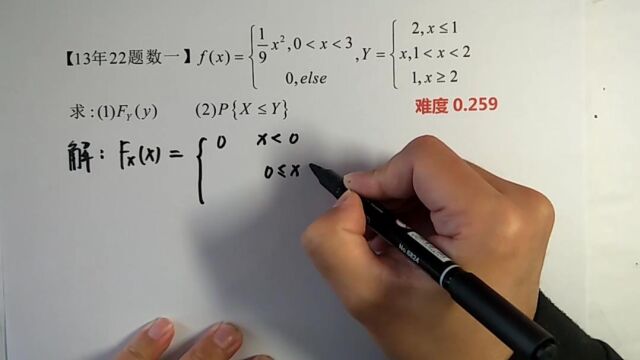 【13年22题数一】f(x)={1/9 x²,0<x<3 0,else ,Y={2,x≤1 x,1<x<2 1,x≥2
求:(1)F_Y(y) (2)P{X≤Y} 难度 0.259
解: F_X(x)={0 x<0
0≤x